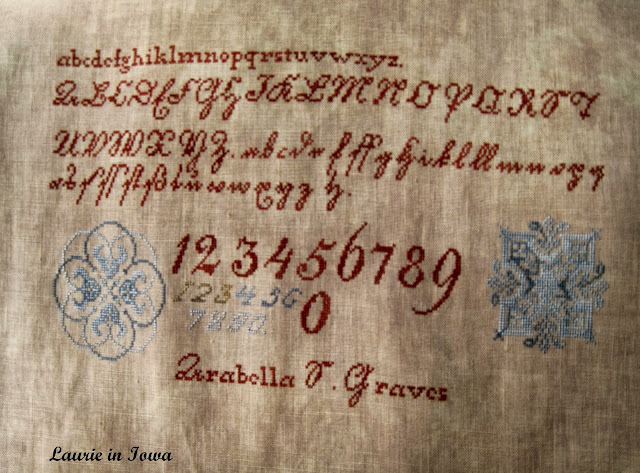 abcdefghiklmnopqrstuvwxyz.
ABCDEFGHIKLMNOPQRST
UVWXYZ. abcde f ff g h i k l ll m n o p q
1234567890
123456
7890
Arabella S. Graves
Laurie in Iowa